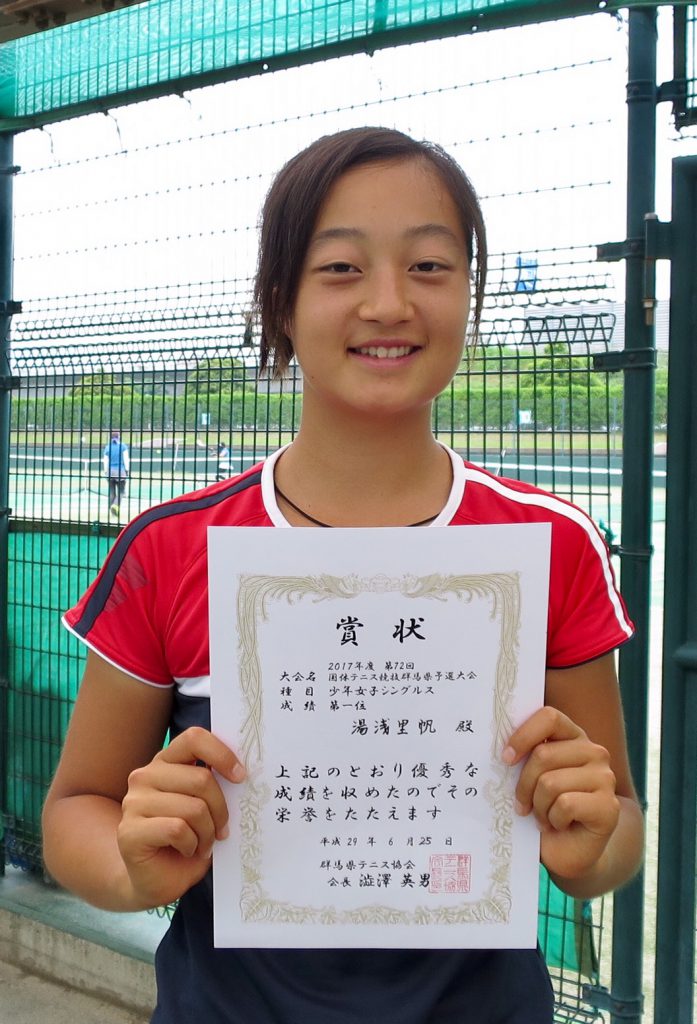 賞状
2017年度 第72回
大会名 国体テニス競技群馬県予選大会
種目 少年女子シングルス
成績 第一位
湯浅里帆 殿
上記のとおり優秀な
成績を収めたのでその
栄誉をたたえます
平成29年6月25日
群馬県テニス協会
会長 澁澤英男